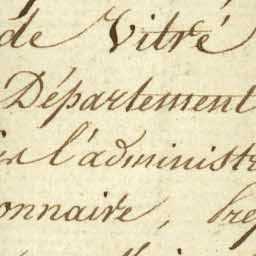 de Vitré
Département
l'administr
onnaire,